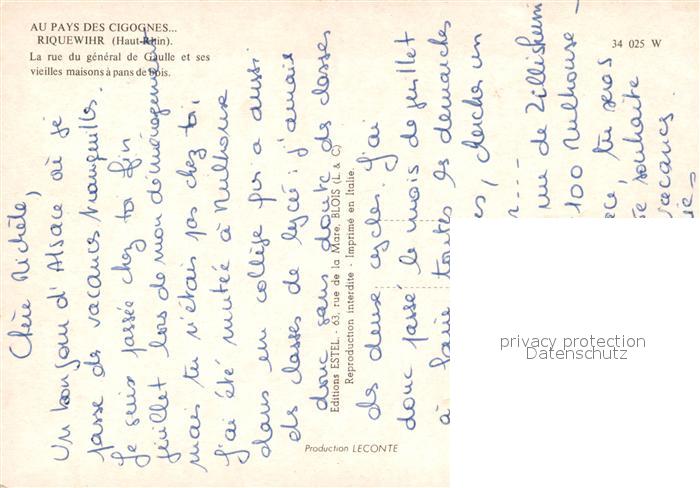 AU PAYS DES CIGOGNES...
RIQUEWIHR (Haut-Rhin).
La rue du général de Gaulle et ses
vieilles maisons à pans de bois.
34 025 W
Chère Michèle,
Un bonjour d'Alsace où je
passe des vacances tranquilles.
Je suis passée chez toi fin
juillet lors de mon déménagement
mais tu n'étais pas chez toi,
J'ai été mutée à Mulhouse
dans un collège qui a aussi
des classes de lycée : j'aurais
donc sans doute des classes
des deux cycles. J'ai
donc passé le mois de juillet
à faire toutes les démarches
es, chercher un
r...
rue de Zillisheim
100 Mulhouse -
ce, tu seras
te souhaite
vacances.
Editions ESTEL - 63, rue de la Mare, BLOIS (L. & C.)
Reproduction interdite - Imprimé en Italie.
Production LECONTE
privacy protection
Datenschutz